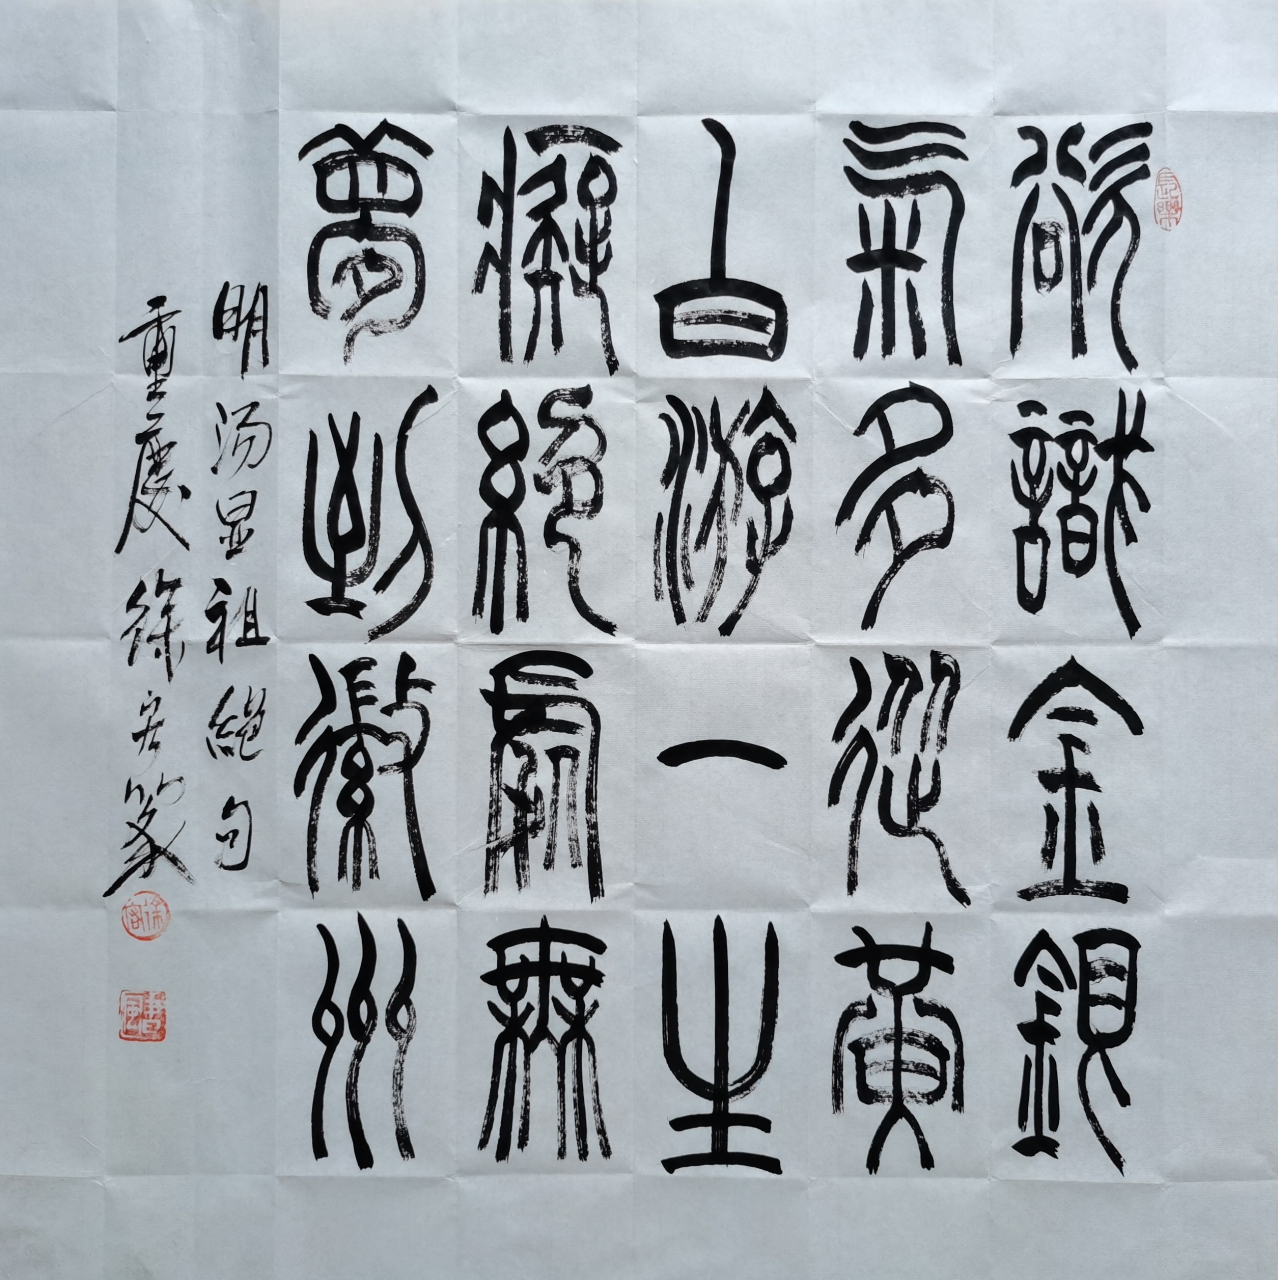 長樂
欲識金銀
氣多從黃
白游一生
癡絕處無
夢到徽州
明汤显祖絕句
重慶徐客篆